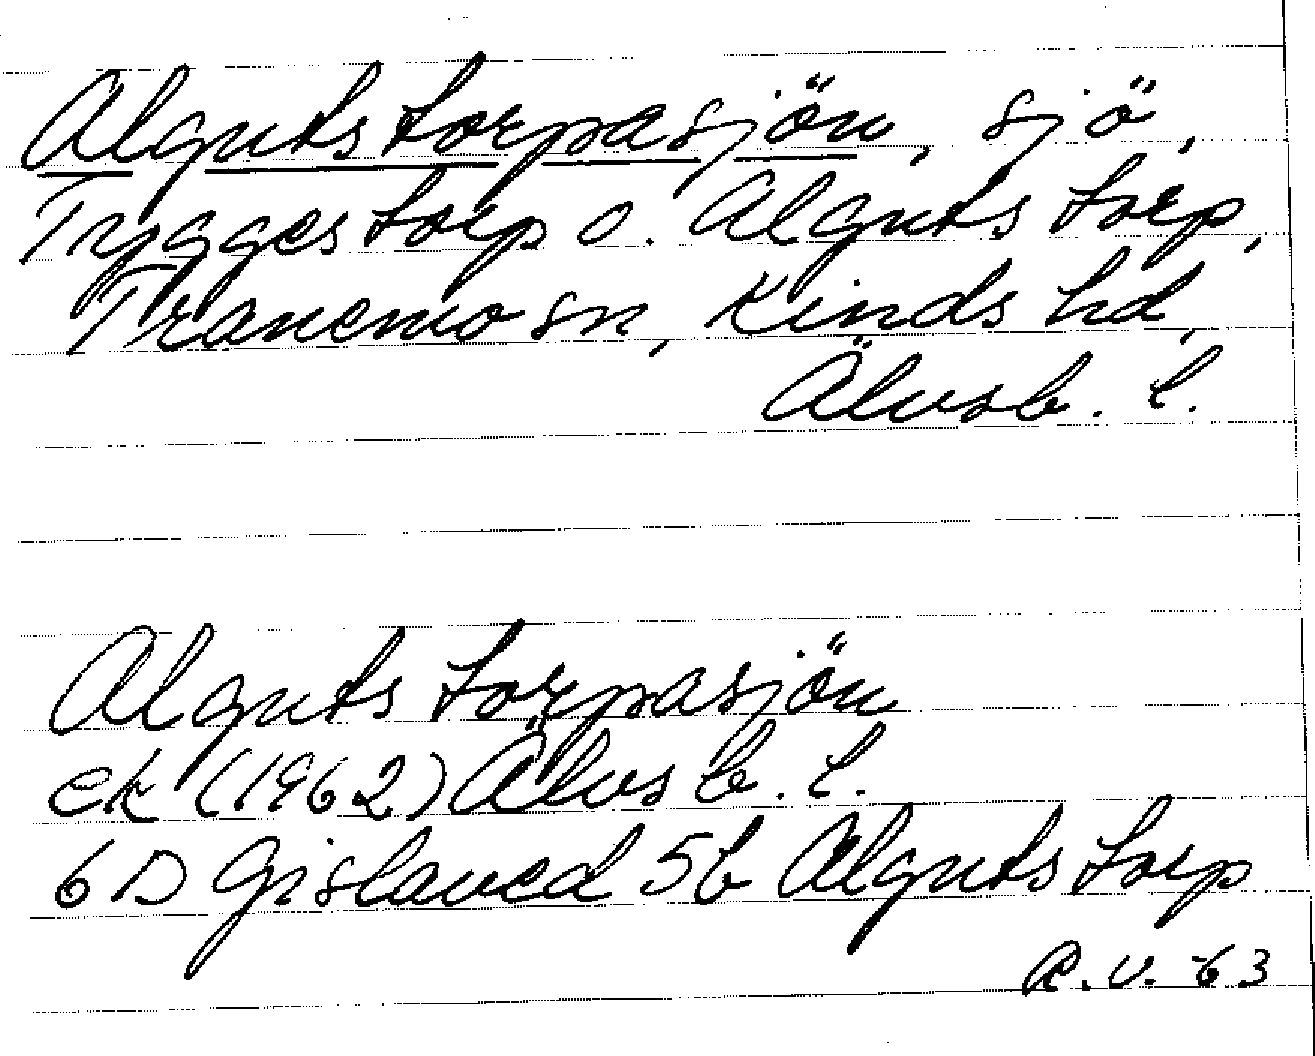 Algutstorpasjön, sjö,
Tryggestorp o. Algutstorp,
Tranemo sn, Kinds hd,
Älvsb. l.
Algutstorpasjön
ek (1962) Älvsb. l.
6D Gislaved 5b Algutstorp
R.V. -63